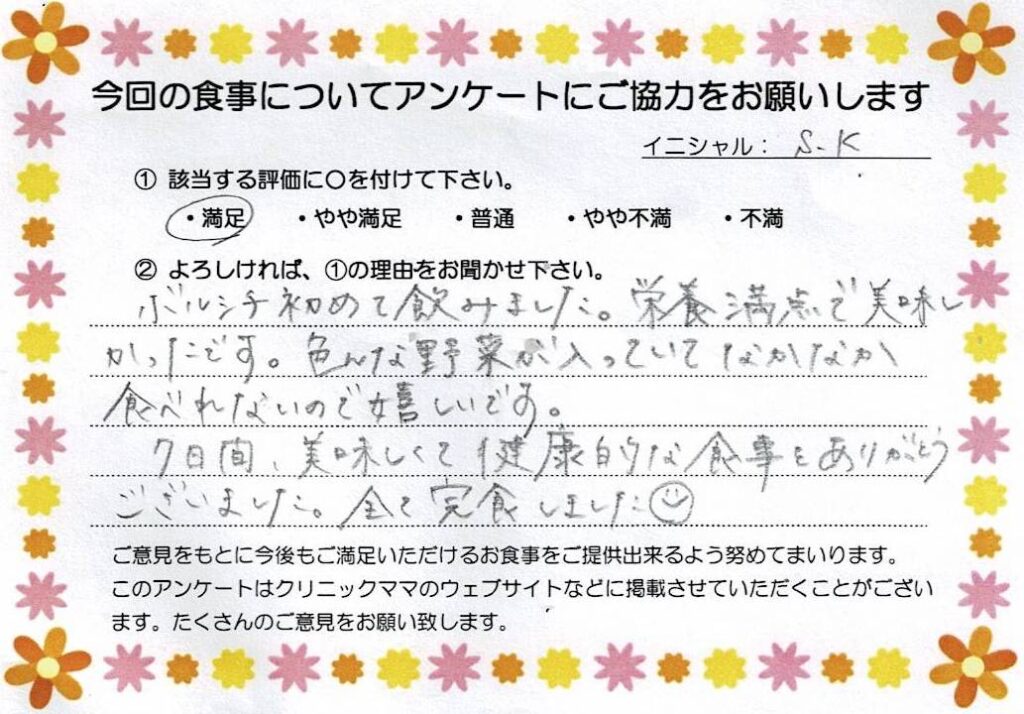 今回の食事についてアンケートにご協力をお願いします
イニシャル： S.K
① 該当する評価に〇を付けて下さい。
・満足 ・やや満足 ・普通 ・やや不満 ・不満
② よろしければ、①の理由をお聞かせ下さい。
ボルシチ初めて飲みました。栄養満点で美味し
かったです。色んな野菜が入っていてなかなか
食べれないので嬉しいです。
7日間、美味しくて健康的な食事をありがとう
ございました。全て完食しました
ご意見をもとに今後もご満足いただけるお食事をご提供出来るよう努めてまいります。
このアンケートはクリニックママのウェブサイトなどに掲載させていただくことがござい
ます。たくさんのご意見をお願い致します。